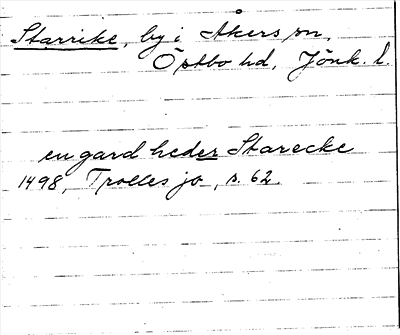 Starrike, by i Åkers sn,
Östbo hd, Jönk. l.
en gard heder Starecke
1498, Trolles jo, s. 62.